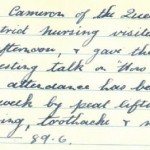 Cameron of the Quee
trict nursing visite
fternoon, & gave th
esting talk on "How
attendance has be
week by peat lifti
ng, toothache & m
89.6.